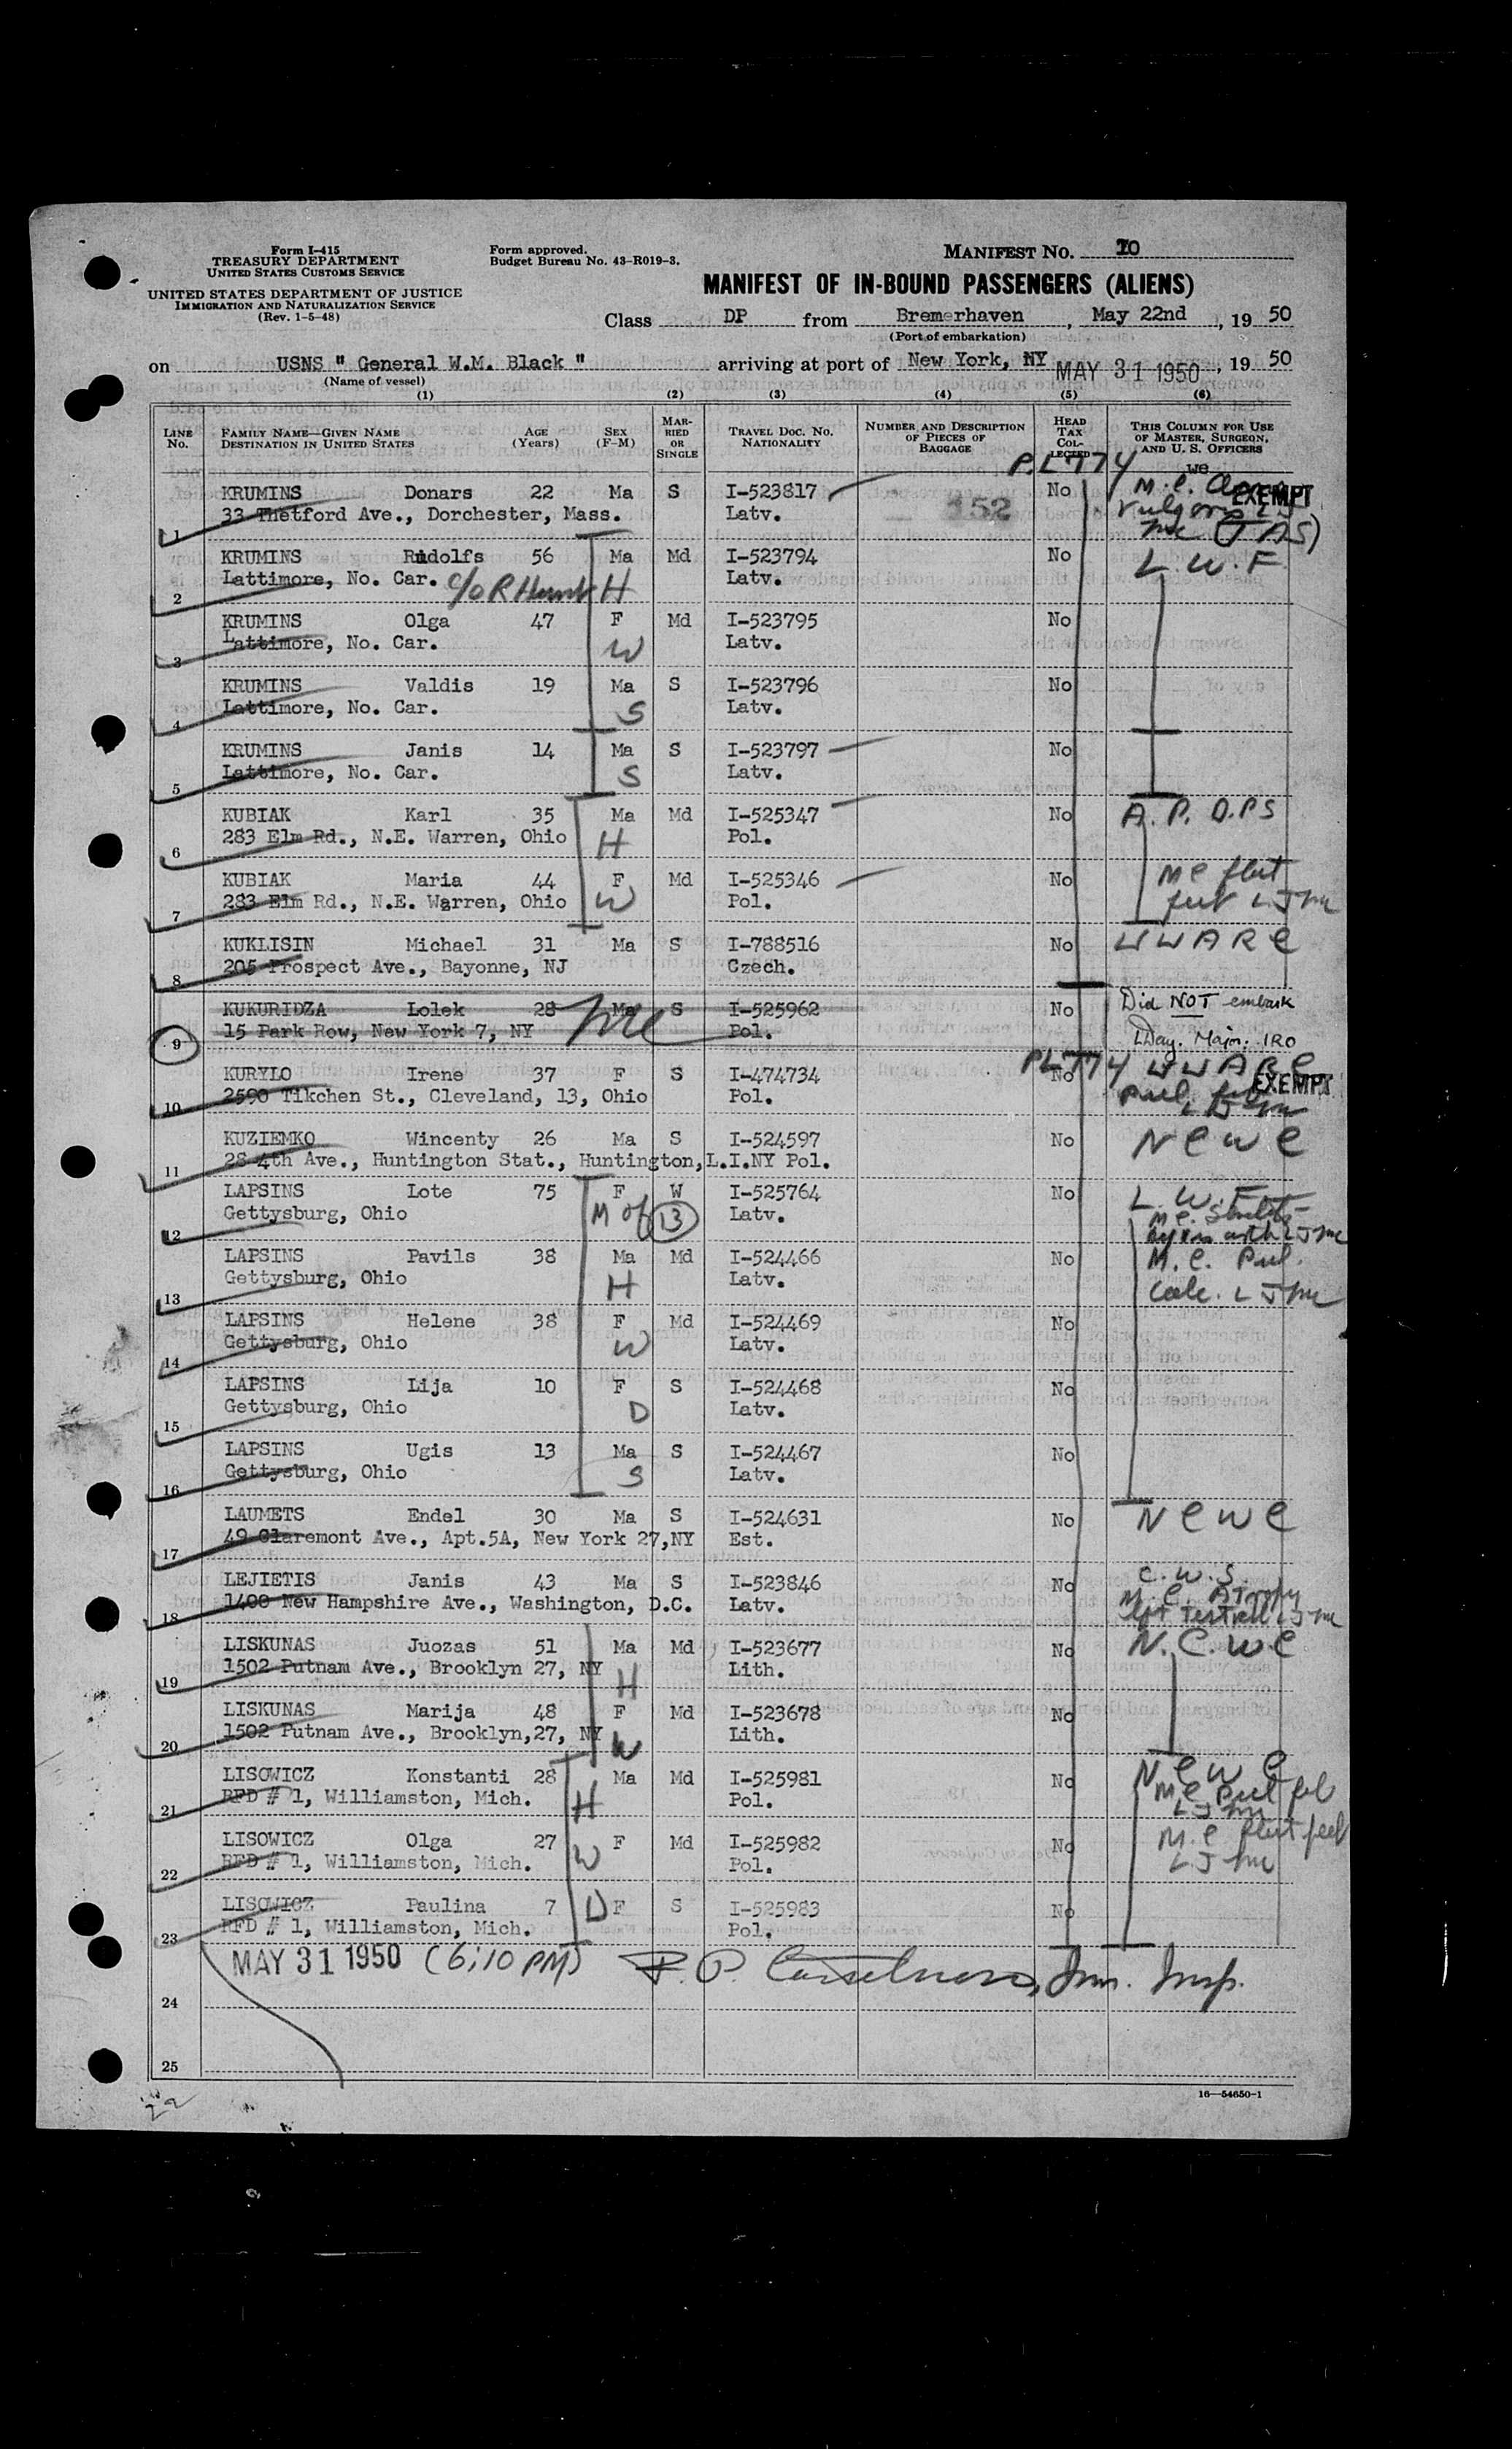 Form I-415
TREASURY DEPARTMENT
UNITED STATES CUSTOMS SERVICE
UNITED STATES DEPARTMENT OF JUSTICE
IMMIGRATION AND NATURALIZATION SERVICE
(Rev. 1-5-48)
Form approved.
Budget Bureau No. 43-R019-3.
MANIFEST NO. 10
MANIFEST OF IN-BOUND PASSENGERS (ALIENS)
Class DP from Bremerhaven, May 22nd, 19 50
(Port of embarkation)
on USNS " General W.M. Black " arriving at port of New York, NY MAY 31 1950, 19 50
(Name of vessel)
(1) (2) (3) (4) (5) (6)
LINE No. FAMILY NAME—GIVEN NAME DESTINATION IN UNITED STATES AGE (Years) SEX (F-M) MARRIED OR SINGLE TRAVEL DOC. NO. NATIONALITY NUMBER AND DESCRIPTION OF PIECES OF BAGGAGE HEAD TAX COLLECTED THIS COLUMN FOR USE OF MASTER, SURGEON, AND U. S. OFFICERS
P.L 774 we
KRUMINS Donars 22 Ma S I-523817 No M.C. EXEMPT
1 33 Thetford Ave., Dorchester, Mass. Latv. 152
KRUMINS Rudolfs 56 Ma Md I-523794 No L.W.F.
2 Lattimore, No. Car. c/o R Hunt H Latv.
KRUMINS Olga 47 F Md I-523795 No
3 Lattimore, No. Car. W Latv.
KRUMINS Valdis 19 Ma S I-523796 No
4 Lattimore, No. Car. S Latv.
KRUMINS Janis 14 Ma S I-523797 No
5 Lattimore, No. Car. S Latv.
KUBIAK Karl 35 Ma Md I-525347 No A.P.D.PS
6 283 Elm Rd., N.E. Warren, Ohio H Pol.
KUBIAK Maria 44 F Md I-525346 No MC flat
7 283 Elm Rd., N.E. Warren, Ohio W Pol. feet
KUKLISIN Michael 31 Ma S I-788516 No WWARC
8 205 Prospect Ave., Bayonne, NJ Czech.
KUKURIDZA Lolek 28 Ma S I-525962 No Did NOT embark
9 15 Park Row, New York 7, NY Pol. Major. IRO
PL774 WWARC
KURYLO Irene 37 F S I-474734 No EXEMPT
10 2590 Tikchen St., Cleveland, 13, Ohio Pol.
KUZIEMKO Wincenty 26 Ma S I-524597 No NCWC
11 28-4th Ave., Huntington Stat., Huntington,L.I.NY Pol.
LAPSINS Lote 75 F W I-525764 No L.W.F
12 Gettysburg, Ohio M of 13 Latv.
LAPSINS Pavils 38 Ma Md I-524466 No M.C.
13 Gettysburg, Ohio H Latv.
LAPSINS Helene 38 F Md I-524469 No
14 Gettysburg, Ohio W Latv.
LAPSINS Lija 10 F S I-524468 No
15 Gettysburg, Ohio D Latv.
LAPSINS Ugis 13 Ma S I-524467 No
16 Gettysburg, Ohio S Latv.
LAUMETS Endel 30 Ma S I-524631 No NCWC
17 49 Claremont Ave., Apt.5A, New York 27,NY Est.
LEJIETIS Janis 43 Ma S I-523846 No C.W.S.
18 1400 New Hampshire Ave., Washington, D.C. Latv. M.C. Atrophy
LISKUNAS Juozas 51 Ma Md I-523677 No N.C.W.C
19 1502 Putnam Ave., Brooklyn 27, NY H Lith.
LISKUNAS Marija 48 F Md I-523678 No
20 1502 Putnam Ave., Brooklyn,27, NY W Lith.
LISOWICZ Konstanti 28 Ma Md I-525981 No NCWC
21 RFD # 1, Williamston, Mich. H Pol. MC
LISOWICZ Olga 27 F Md I-525982 No M.C flat feet
22 RFD # 1, Williamston, Mich. W Pol.
LISOWICZ Paulina 7 D F S I-525983 No
23 RFD # 1, Williamston, Mich. Pol.
MAY 31 1950 (6:10 PM) Imm. Insp.
24
25
16—54650-1